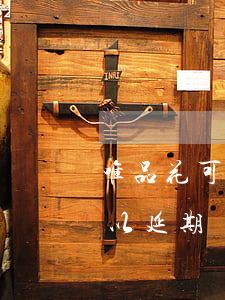 INRI
唯品花可
以延期